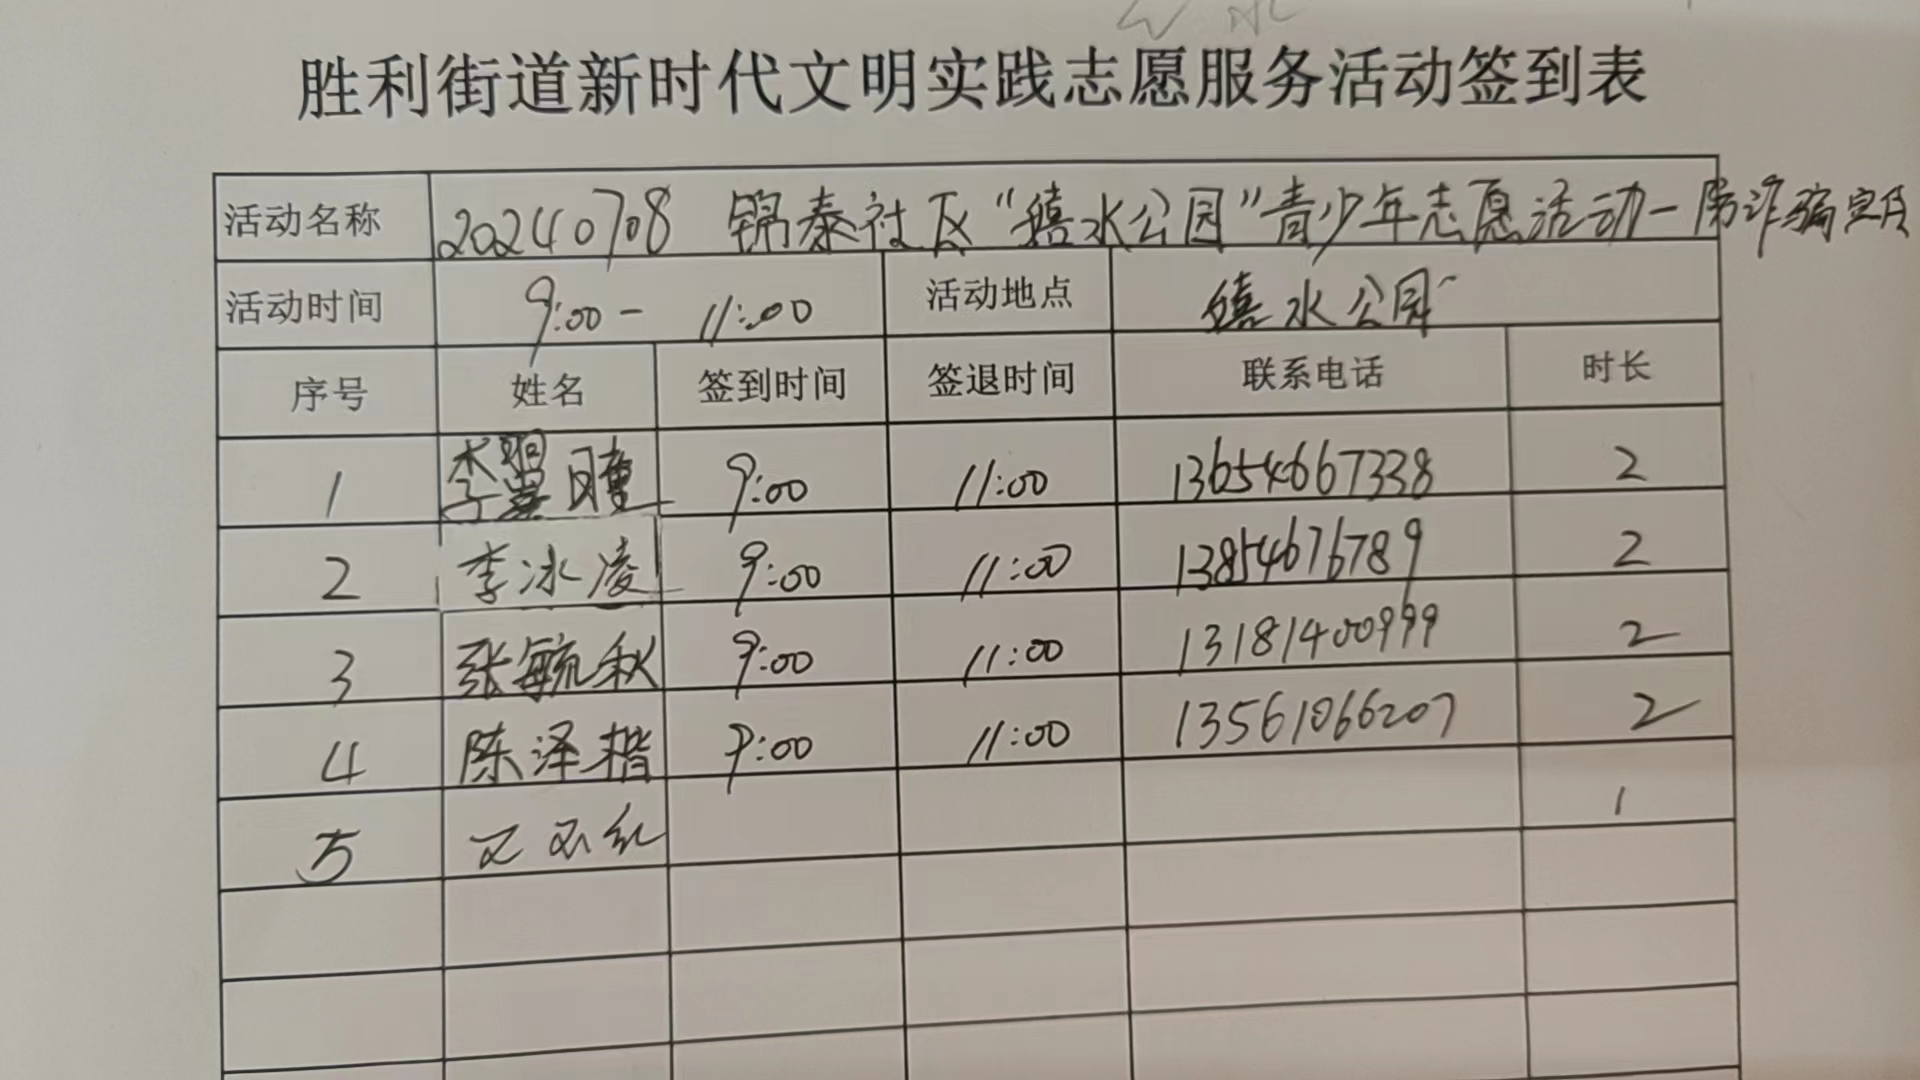 胜利街道新时代文明实践志愿服务活动签到表
活动名称 20240708 锦泰社区“嬉水公园”青少年志愿活动—防诈骗宣
活动时间 9:00- 11:00 活动地点 水公园
序号 姓名 签到时间 签退时间 联系电话 时长
1 李 9:00 11:00 13654667338 2
2 李冰凌 9:00 11:00 13854676789 2
3 张毓秋 9:00 11:00 13181400999 2
4 陈泽楷 9:00 11:00 13561066207 2
5 1